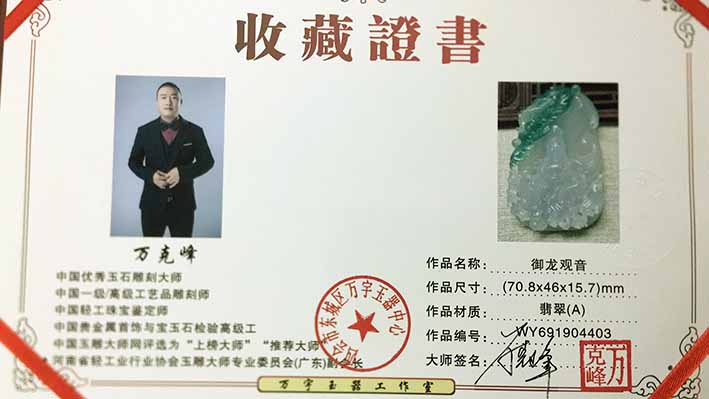 收藏證書
万克峰
中国优秀玉石雕刻大师
中国一级/高级工艺品雕刻师
中国轻工珠宝鉴定师
中国贵金属首饰与宝玉石检验高级工
中国玉雕大师网评选为“上榜大师”“推荐大师”
河南省轻工业行业协会玉雕大师专业委员会(广东)副会长
作品名称: 御龙观音
作品尺寸: (70.8x46x15.7)mm
作品材质: 翡翠(A)
作品编号: WY691904403
大师签名:
万克峰
四会市东城区万宇玉器中心
万宇玉器工作室